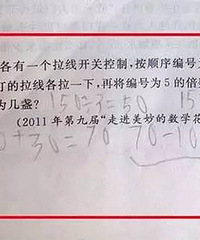 各有一个拉线开关控制,按顺序编号为
丁的拉线各拉一下,再将编号为5的倍数
为几盏? 150÷3=50 15
(2011年第九届“走进美妙的数学花
+30=70 70-10